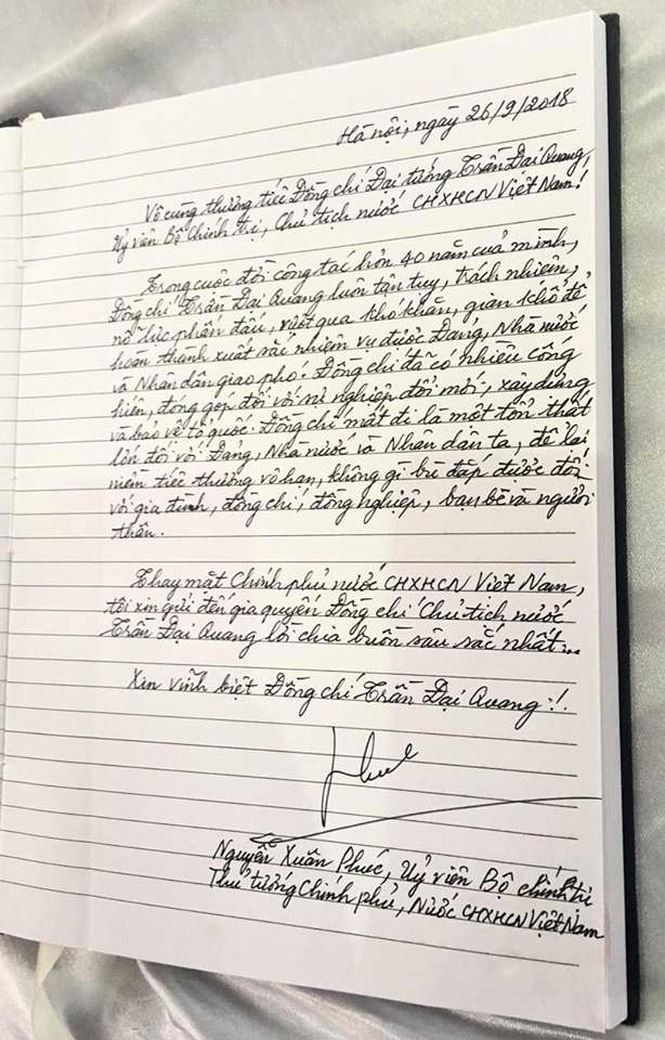 Hà nội, ngày 26/9/2018
Vô cùng thương tiếc Đồng chí Đại tướng Trần Đại Quang,
Uỷ viên Bộ Chính trị, Chủ tịch nước CHXHCN Việt Nam!
Trong cuộc đời công tác hơn 40 năm của mình,
Đồng chí Trần Đại Quang luôn tận tuỵ, trách nhiệm,
nỗ lực phấn đấu, vượt qua khó khăn, gian khổ để
hoàn thành xuất sắc nhiệm vụ được Đảng, Nhà nước
và Nhân dân giao phó. Đồng chí đã có nhiều cống
hiến, đóng góp đối với sự nghiệp đổi mới, xây dựng
và bảo vệ tổ quốc. Đồng chí mất đi là một tổn thất
lớn đối với Đảng, Nhà nước và Nhân dân ta, để lại
niềm tiếc thương vô hạn, không gì bù đắp được đối
với gia đình, đồng chí, đồng nghiệp, bạn bè và người
thân.
Thay mặt Chính phủ nước CHXHCN Việt Nam,
tôi xin gửi đến gia quyến Đồng chí Chủ tịch nước
Trần Đại Quang lời chia buồn sâu sắc nhất...
Xin vĩnh biệt Đồng chí Trần Đại Quang!!
Phuc
Nguyễn Xuân Phúc, Uỷ viên Bộ chính trị
Thủ tướng Chính phủ, Nước CHXHCN Việt Nam